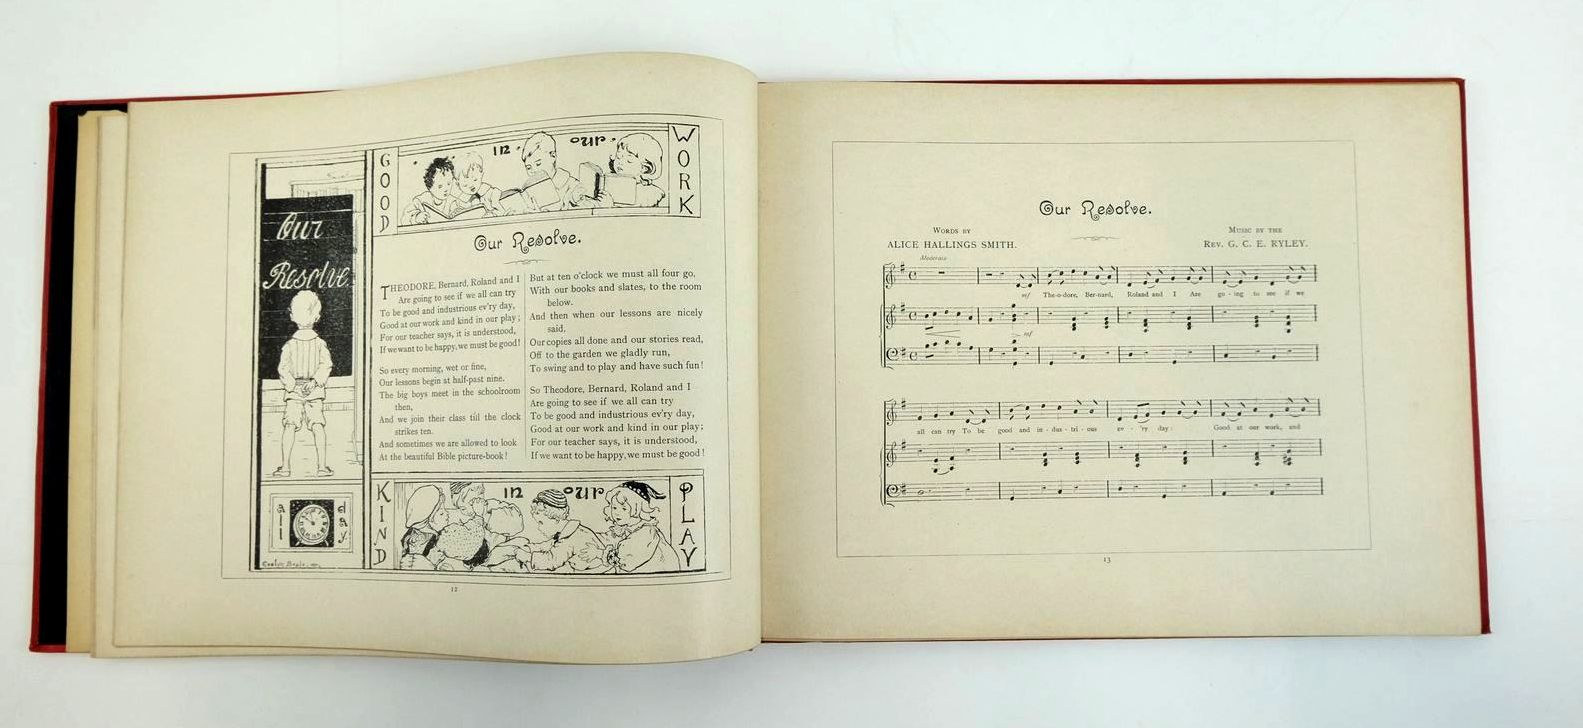 GOOD
in our
WORK
Our
Resolve
Our Resolve.
THEODORE, Bernard, Roland and I
Are going to see if we all can try
To be good and industrious ev'ry day,
Good at our work and kind in our play;
For our teacher says, it is understood,
If we want to be happy, we must be good!
So every morning, wet or fine,
Our lessons begin at half-past nine.
The big boys meet in the schoolroom
then,
And we join their class till the clock
strikes ten.
And sometimes we are allowed to look
At the beautiful Bible picture-book!
But at ten o'clock we must all four go,
With our books and slates, to the room
below.
And then when our lessons are nicely
said,
Our copies all done and our stories read,
Off to the garden we gladly run,
To swing and to play and have such fun!
So Theodore, Bernard, Roland and I
Are going to see if we all can try
To be good and industrious ev'ry day,
Good at our work and kind in our play;
For our teacher says, it is understood,
If we want to be happy, we must be good!
all
day.
KIND
in our
PLAY
12
Our Resolve.
WORDS BY
ALICE HALLINGS SMITH.
MUSIC BY THE
REV. G. C. E. RYLEY.
Moderato
mf The-o-dore, Ber-nard, Roland and I Are go-ing to see if we
mf
all can try To be good and in-dus-tri-ous ev-'ry day: Good at our work, and
13